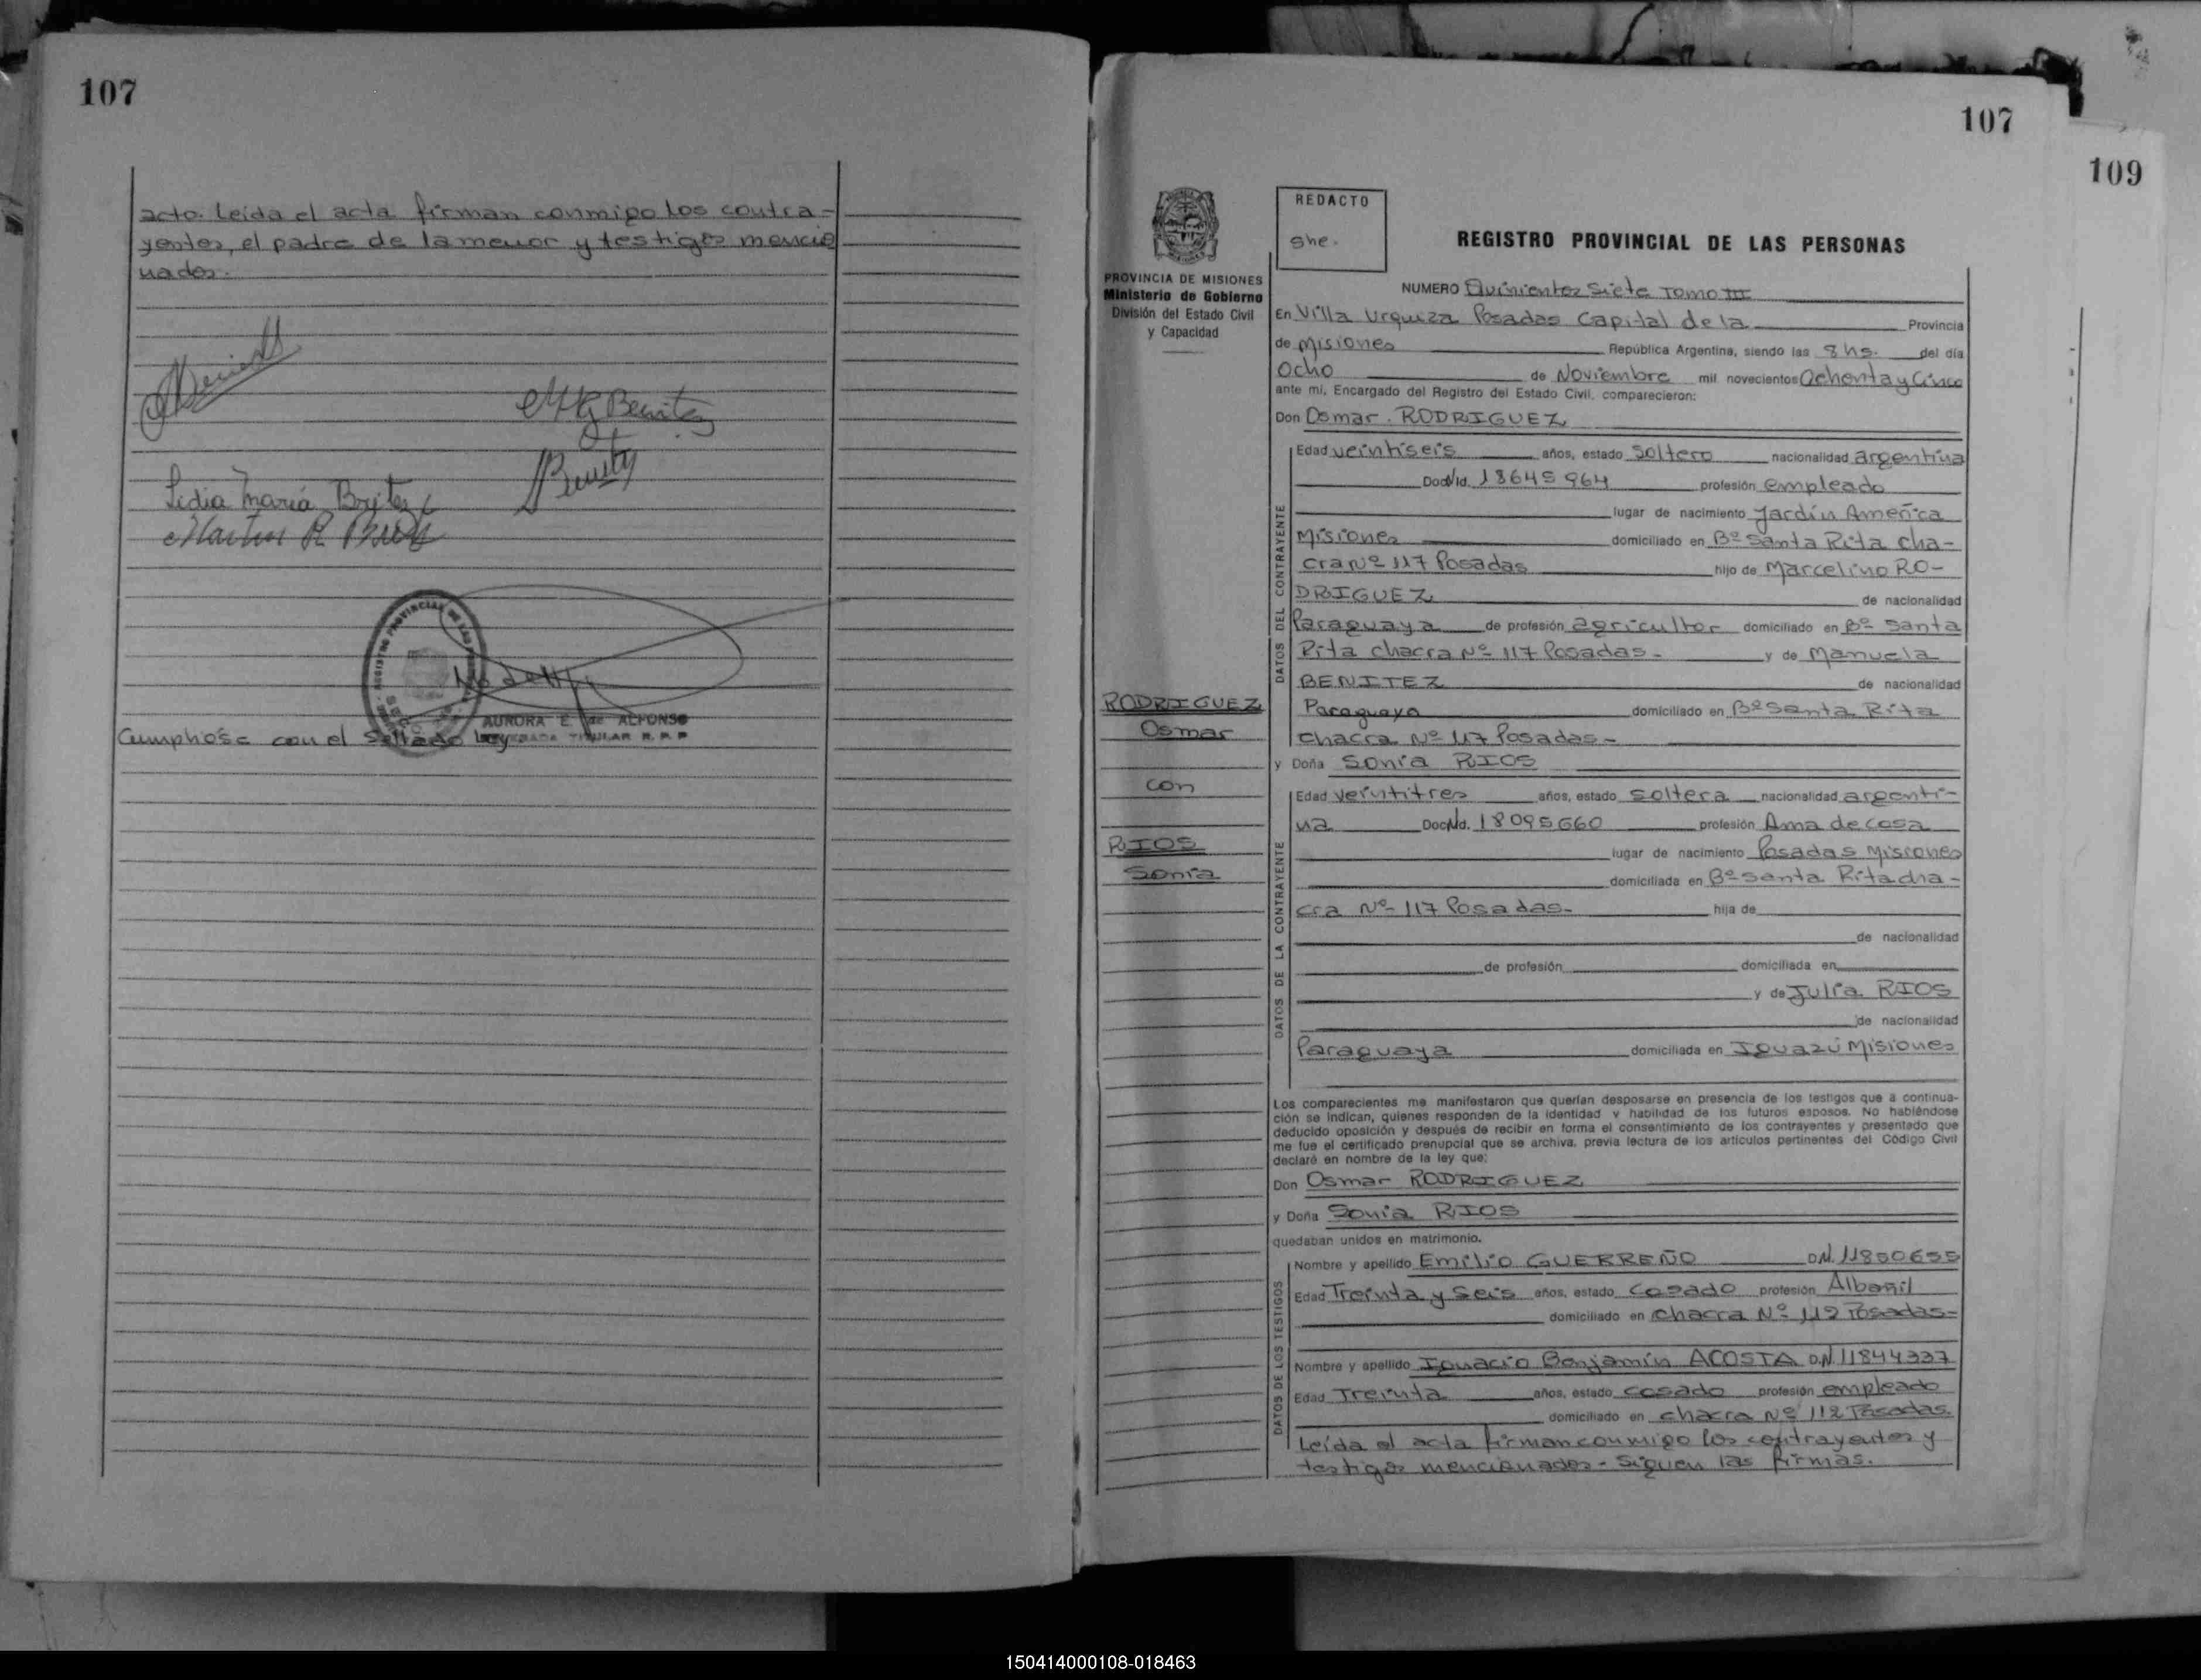 107
acto. Leída el acta firman conmigo los contra-
yentes, el padre de la menor y testigos mencio
nados.
Lidia María Britez
AURORA E. de ALFONSO
TITULAR R. P. P
Cumplióse con el Sellado Ley
107
109
REDACTO
She.
REGISTRO PROVINCIAL DE LAS PERSONAS
PROVINCIA DE MISIONES
Ministerio de Gobierno
División del Estado Civil
y Capacidad
NUMERO Quinientos Siete Tomo III
En Villa Urquiza Posadas Capital de la Provincia
de Misiones República Argentina, siendo las 8 hs. del día
Ocho de Noviembre mil novecientos Ochenta y Cinco
ante mí, Encargado del Registro del Estado Civil, comparecieron:
Don Osmar. RODRIGUEZ
DATOS DEL CONTRAYENTE
Edad veintiseis años, estado Soltero nacionalidad argentina
Doc. Nd. 18645964 profesión empleado
lugar de nacimiento Jardín América
Misiones domiciliado en Bº Santa Rita cha-
cra Nº 117 Posadas hijo de Marcelino RO-
DRIGUEZ de nacionalidad
Paraguaya de profesión agricultor domiciliado en Bº Santa
Rita chacra Nº 117 Posadas- y de Manuela
BENITEZ de nacionalidad
Paraguaya domiciliado en Bº Santa Rita
chacra Nº 117 Posadas-
RODRIGUEZ
Osmar
con
RIOS
Sonia
y Doña Sonia RIOS
DATOS DE LA CONTRAYENTE
Edad veintitres años, estado soltera nacionalidad argenti-
na Doc. Nd. 18095660 profesión Ama de casa
lugar de nacimiento Posadas Misiones
domiciliada en Bº Santa Rita cha-
cra Nº 117 Posadas- hija de
de nacionalidad
de profesión domiciliada en
y de Julia RIOS
de nacionalidad
Paraguaya domiciliada en Iguazú Misiones
Los comparecientes me manifestaron que querían desposarse en presencia de los testigos que a continua-
ción se indican, quienes responden de la identidad y habilidad de los futuros esposos. No habiéndose
deducido oposición y después de recibir en forma el consentimiento de los contrayentes y presentado que
me fue el certificado prenupcial que se archiva, previa lectura de los artículos pertinentes del Código Civil
declaré en nombre de la ley que:
Don Osmar RODRIGUEZ
y Doña Sonia RIOS
quedaban unidos en matrimonio.
DATOS DE LOS TESTIGOS
Nombre y apellido Emilio GUERREÑO D.N. 11850655
Edad Treinta y Seis años, estado Casado profesión Albañil
domiciliado en Chacra Nº 112 Posadas-
Nombre y apellido Ignacio Benjamín ACOSTA D.N. 11844337
Edad Treinta años, estado casado profesión empleado
domiciliado en chacra Nº 112 Posadas.
Leída el acta firman conmigo los contrayentes y
testigos mencionados- Siguen las firmas.
150414000108-018463